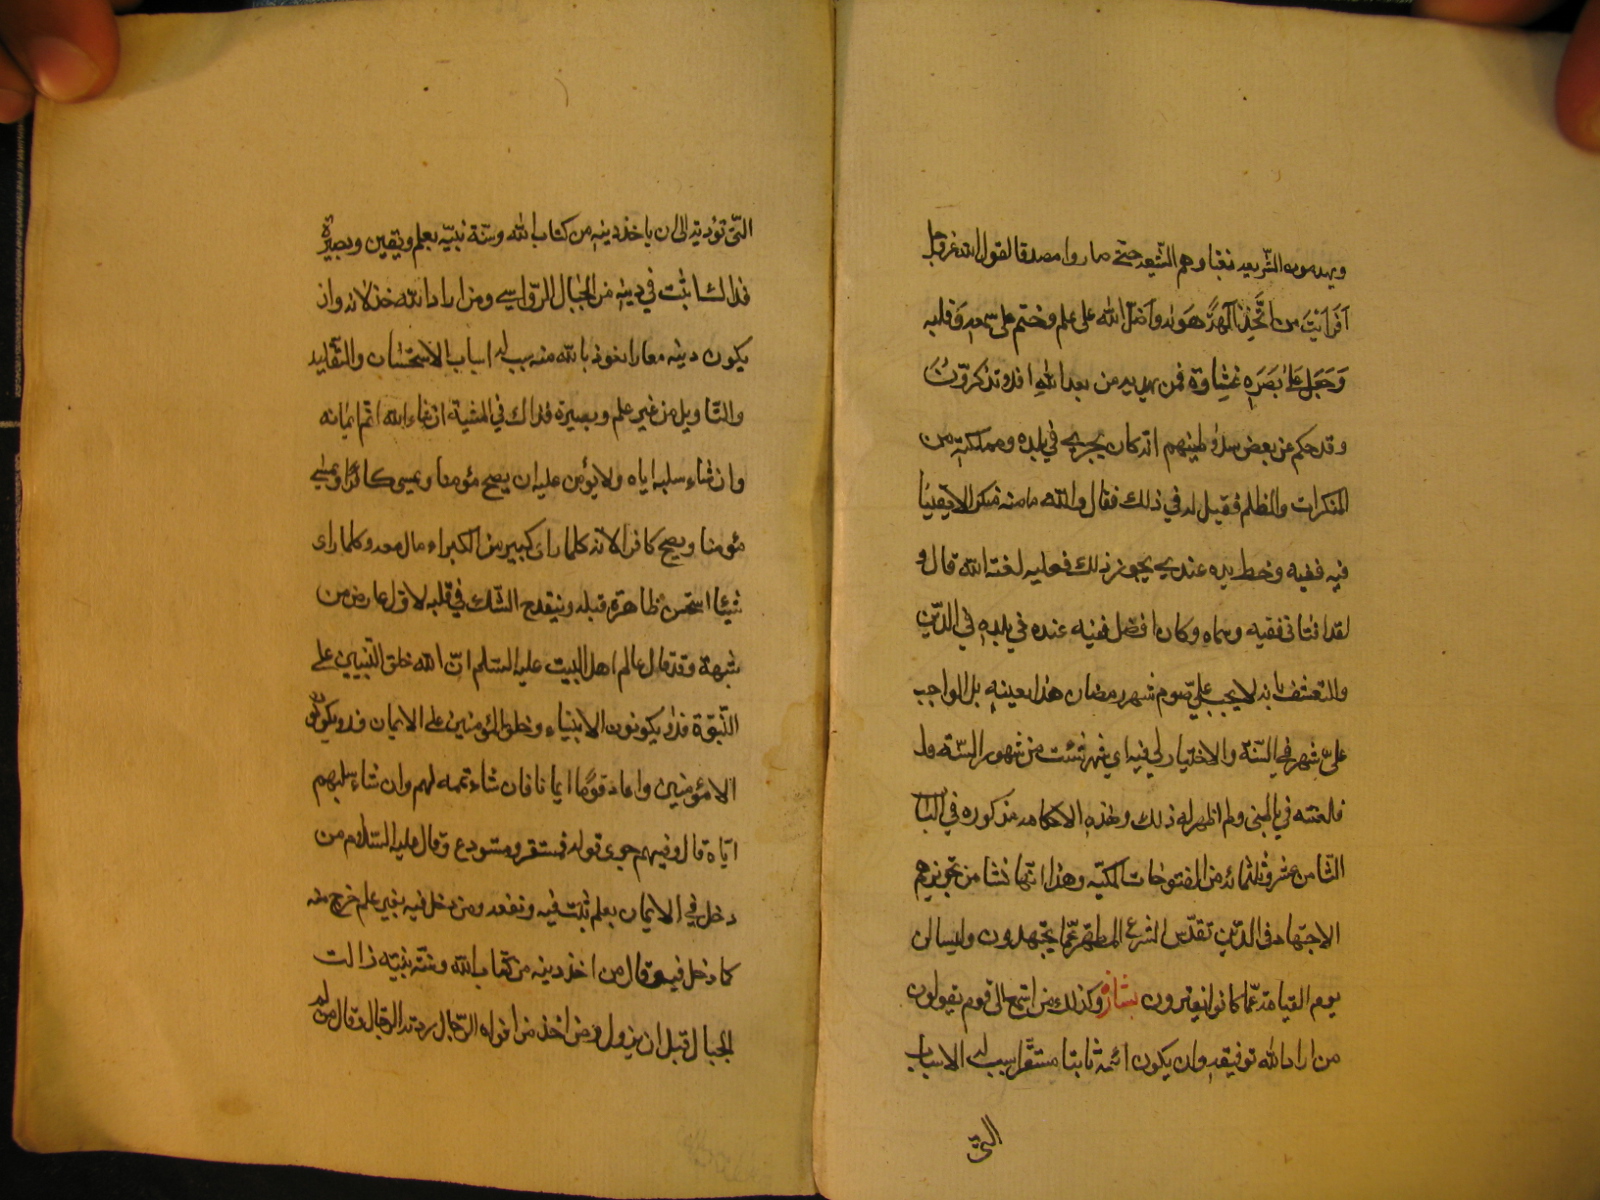 ويهدمون الشريعة نفيا وهم الشيعة حتى صاروا مصدقا لقول الله عز وجل
افرايت من اتخذ الهه هواه واضل الله على علم وختم على سمعه وقلبه
وجعل على بصره غشاوة فمن يهديه من بعد الله افلا تذكرون
وقد حكم عن بعض سلاطينهم انه كان يجري في بلده ومملكته من
المنكرات والظلم فقيل له في ذلك فقال والله ما منه منكر الا يقينا
فيه فقيه وخط يده عندي يجوز ذلك فعليه لعنة الله قال و
لقد افتاني فقيه وسماه وكان افضل فقيه عنده في بلده في الدين
والتعشف بانه لا يجب علي صوم شهر رمضان هذا بعينه بل الواجب
علي شهر في السنة والاختيار لي فيه اي شهر شئت من شهور السنة قال
فلعنته في باطني ولم اظهر له ذلك وهذه الاحكام مذكورة في الباب
الثامن عشر وثلثمائة من الفتوحات المكية وهذا انما نشا من تجويزهم
الاجتهاد في الدين تقدس الشرع المطهر عما يجتهدون وليسالن
يوم القيامة عما كانوا يفترون بشارة وكذلك من استمع الى قوم يقولون
من اراد الله توفيقه وان يكون ائمة ثابتا مستقرا سبب له الاسباب
التى
التى تؤديه الى ان ياخذ دينه من كتاب الله وسنة نبيه بعلم ويقين وبصيرة
فذاك اثبت في دينه من الجبال الرواسي ومن اراد الله خذلانه وان
يكون دينه معارا نعوذ بالله منه سبب له اسباب الاستحسان والتقليد
والتاويل من غير علم وبصيرة فذاك في المشية ان شاء الله اتم ايمانه
وان شاء سلبه اياه ولا يؤمن عليه ان يصبح مؤمنا ويمسي كافرا ويمسي
مؤمنا ويصبح كافرا لانه كلما راى كبير من الكبراء مال معه وكلما راى
شيئا استحسن ظاهره قبله وينقدح الشك في قلبه لاول عارض من
شبهة وقد قال عالم اهل البيت عليه السلم ان الله خلق النبيين على
النبوة فلا يكونون الا انبياء وخلق المؤمنين على الايمان فلا يكونون
الا مؤمنين واعار قوما ايمانا فان شاء تممه لهم وان شاء سلبهم
اياه قال وفيهم جرى قوله فمستقر ومستودع وقال عليه السلام من
دخل في الايمان بعلم ثبت فيه ونفعه ومن دخل فيه بغير علم خرج منه
كما دخل فيه وقال من اخذ دينه من كتاب الله وسنة نبيه زالت
الجبال قبل ان يزول ومن اخذ من افواه الرجال ردته الرجال وقال من لم